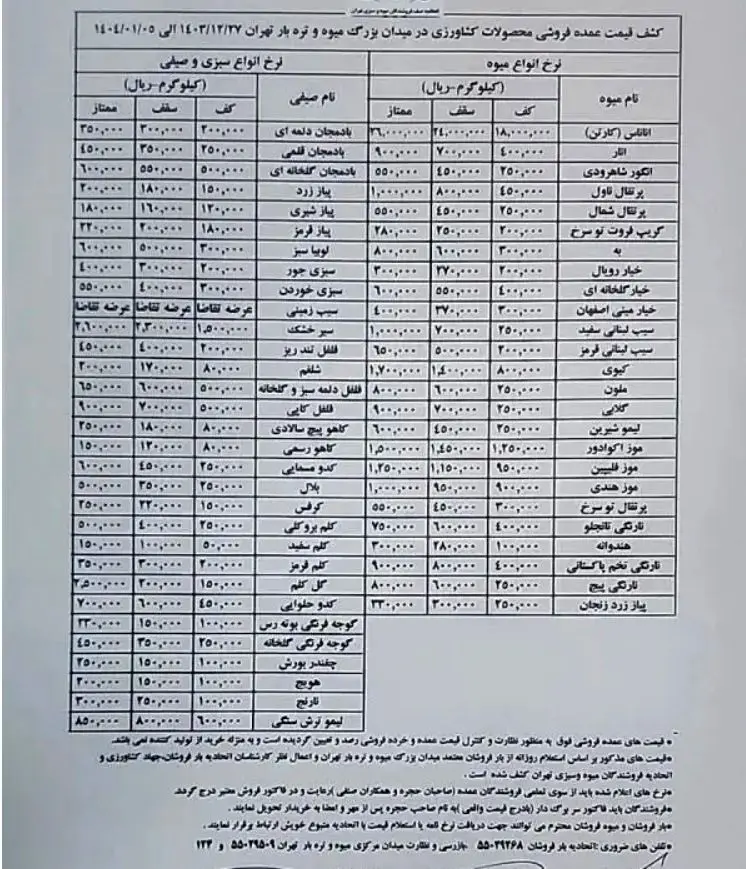 اتحادیه صنف فروشندگان میوه و سبزی تهران
کشف قیمت عمده فروشی محصولات کشاورزی در میدان بزرگ میوه و تره بار تهران ۱۴۰۳/۱۲/۲۷ الی ۱۴۰۴/۰۱/۰۵
نرخ انواع میوه نرخ انواع سبزی و صیفی
نام میوه (کیلوگرم-ریال) نام صیفی (کیلوگرم-ریال)
کف سقف ممتاز کف سقف ممتاز
اناناس (کارتن) ۱۸,۰۰۰,۰۰۰ ۲۴,۰۰۰,۰۰۰ ۲۶,۰۰۰,۰۰۰ بادمجان دلمه ای ۲۰۰,۰۰۰ ۳۰۰,۰۰۰ ۳۵۰,۰۰۰
انار ۴۰۰,۰۰۰ ۷۰۰,۰۰۰ ۹۰۰,۰۰۰ بادمجان قلمی ۲۵۰,۰۰۰ ۳۵۰,۰۰۰ ۴۵۰,۰۰۰
انگور شاهرودی ۲۵۰,۰۰۰ ۴۵۰,۰۰۰ ۵۵۰,۰۰۰ بادمجان گلخانه ای ۵۰۰,۰۰۰ ۵۵۰,۰۰۰ ۶۰۰,۰۰۰
پرتقال ناول ۴۵۰,۰۰۰ ۸۰۰,۰۰۰ ۱,۰۰۰,۰۰۰ پیاز زرد ۱۵۰,۰۰۰ ۱۸۰,۰۰۰ ۲۰۰,۰۰۰
پرتقال شمال ۲۵۰,۰۰۰ ۴۵۰,۰۰۰ ۵۵۰,۰۰۰ پیاز شیری ۱۲۰,۰۰۰ ۱۶۰,۰۰۰ ۱۸۰,۰۰۰
گریپ فروت تو سرخ ۲۰۰,۰۰۰ ۲۵۰,۰۰۰ ۲۸۰,۰۰۰ پیاز قرمز ۱۸۰,۰۰۰ ۲۰۰,۰۰۰ ۲۲۰,۰۰۰
به ۳۰۰,۰۰۰ ۶۰۰,۰۰۰ ۸۰۰,۰۰۰ لوبیا سبز ۳۰۰,۰۰۰ ۵۰۰,۰۰۰ ۶۰۰,۰۰۰
خیار رویال ۲۰۰,۰۰۰ ۲۷۰,۰۰۰ ۳۰۰,۰۰۰ سبزی جور ۲۰۰,۰۰۰ ۳۰۰,۰۰۰ ۴۰۰,۰۰۰
خیار گلخانه ای ۴۰۰,۰۰۰ ۵۵۰,۰۰۰ ۶۰۰,۰۰۰ سبزی خوردن ۳۰۰,۰۰۰ ۴۰۰,۰۰۰ ۵۵۰,۰۰۰
خیار مینی اصفهان ۳۰۰,۰۰۰ ۳۷۰,۰۰۰ ۴۰۰,۰۰۰ سیب زمینی عرضه تقاضا عرضه تقاضا عرضه تقاضا
سیب لبنانی سفید ۲۵۰,۰۰۰ ۷۰۰,۰۰۰ ۱,۰۰۰,۰۰۰ سیر خشک ۱,۵۰۰,۰۰۰ ۲,۳۰۰,۰۰۰ ۲,۶۰۰,۰۰۰
سیب لبنانی قرمز ۲۰۰,۰۰۰ ۵۰۰,۰۰۰ ۶۵۰,۰۰۰ فلفل تند ریز ۲۰۰,۰۰۰ ۴۰۰,۰۰۰ ۴۵۰,۰۰۰
کیوی ۸۰۰,۰۰۰ ۱,۴۰۰,۰۰۰ ۱,۷۰۰,۰۰۰ شلغم ۸۰,۰۰۰ ۱۷۰,۰۰۰ ۲۰۰,۰۰۰
ملون ۲۵۰,۰۰۰ ۶۰۰,۰۰۰ ۸۰۰,۰۰۰ فلفل دلمه سبز و گلخانه ۵۰۰,۰۰۰ ۶۰۰,۰۰۰ ۶۵۰,۰۰۰
گلابی ۲۵۰,۰۰۰ ۷۰۰,۰۰۰ ۹۰۰,۰۰۰ فلفل کاپی ۵۰۰,۰۰۰ ۷۰۰,۰۰۰ ۹۰۰,۰۰۰
لیمو شیرین ۲۵۰,۰۰۰ ۴۵۰,۰۰۰ ۶۰۰,۰۰۰ کاهو پیچ سالادی ۸۰,۰۰۰ ۱۸۰,۰۰۰ ۲۵۰,۰۰۰
موز اکوادور ۱,۲۵۰,۰۰۰ ۱,۴۵۰,۰۰۰ ۱,۵۰۰,۰۰۰ کاهو رسمی ۸۰,۰۰۰ ۱۲۰,۰۰۰ ۱۵۰,۰۰۰
موز فلیپین ۹۵۰,۰۰۰ ۱,۱۵۰,۰۰۰ ۱,۲۵۰,۰۰۰ کدو مسمایی ۲۵۰,۰۰۰ ۴۵۰,۰۰۰ ۶۰۰,۰۰۰
موز هندی ۹۰۰,۰۰۰ ۹۵۰,۰۰۰ ۱,۰۰۰,۰۰۰ بلال ۲۵۰,۰۰۰ ۳۵۰,۰۰۰ ۵۰۰,۰۰۰
پرتقال تو سرخ ۳۰۰,۰۰۰ ۴۵۰,۰۰۰ ۵۵۰,۰۰۰ کرفس ۱۵۰,۰۰۰ ۲۲۰,۰۰۰ ۲۵۰,۰۰۰
نارنگی تانجلو ۴۰۰,۰۰۰ ۶۰۰,۰۰۰ ۷۵۰,۰۰۰ کلم بروکلی ۲۵۰,۰۰۰ ۴۰۰,۰۰۰ ۵۰۰,۰۰۰
هندوانه ۱۰۰,۰۰۰ ۲۸۰,۰۰۰ ۳۰۰,۰۰۰ کلم سفید ۵۰,۰۰۰ ۱۰۰,۰۰۰ ۱۵۰,۰۰۰
نارنگی تخم پاکستانی ۴۰۰,۰۰۰ ۸۰۰,۰۰۰ ۹۰۰,۰۰۰ کلم قرمز ۲۰۰,۰۰۰ ۳۰۰,۰۰۰ ۳۵۰,۰۰۰
نارنگی پیج ۲۵۰,۰۰۰ ۶۰۰,۰۰۰ ۸۰۰,۰۰۰ گل کلم ۱۵۰,۰۰۰ ۲۰۰,۰۰۰ ۲,۵۰۰,۰۰۰
پیاز زرد زنجان ۲۵۰,۰۰۰ ۳۰۰,۰۰۰ ۳۳۰,۰۰۰ کدو حلوایی ۴۵۰,۰۰۰ ۶۰۰,۰۰۰ ۷۰۰,۰۰۰
گوجه فرنگی بوته رس ۱۰۰,۰۰۰ ۱۵۰,۰۰۰ ۲۳۰,۰۰۰
گوجه فرنگی گلخانه ۲۵۰,۰۰۰ ۳۵۰,۰۰۰ ۴۵۰,۰۰۰
چغندر بورش ۱۰۰,۰۰۰ ۱۵۰,۰۰۰ ۲۵۰,۰۰۰
هویج ۱۰۰,۰۰۰ ۱۵۰,۰۰۰ ۲۰۰,۰۰۰
نارنج ۱۰۰,۰۰۰ ۲۵۰,۰۰۰ ۳۰۰,۰۰۰
لیمو ترش سنگی ۶۰۰,۰۰۰ ۸۰۰,۰۰۰ ۸۵۰,۰۰۰
* قیمت های عمده فروشی فوق به منظور نظارت و کنترل قیمت عمده و خرده فروشی رصد و تعیین گردیده است و به منزله خرید از تولید کننده نمی باشد.
*قیمت های مذکور بر اساس استعلام روزانه از بار فروشان معتمد میدان بزرگ میوه و تره بار تهران و اعمال نظر کارشناسان اتحادیه بار فروشان،جهاد کشاورزی و
اتحادیه فروشندگان میوه وسبزی تهران کشف شده است .
*نرخ های اعلام شده باید از سوی تمامی فروشندگان عمده (صاحبان حجره و همکاران صنفی )رعایت و در فاکتور فروش معتبر درج گردد.
*فروشندگان باید فاکتور سر برگ دار (بادرج قیمت واقعی )به نام صاحب حجره پس از مهر و امضا به خریدار تحویل نمایند .
*بار فروشان و میوه فروشان محترم می توانند جهت دریافت نرخ نامه یا استعلام قیمت با اتحادیه متبوع خویش ارتباط برقرار نمایند .
*تلفن های ضروری :اتحادیه بار فروشان ۵۵۰۲۹۲۶۸ ،بازرسی و نظارت میدان مرکزی میوه و تره بار تهران ۵۵۰۲۹۵۰۹ و ۱۲۴